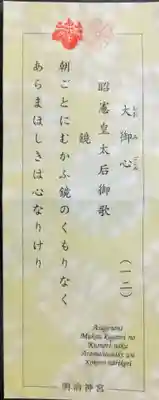 大御心
おおみごころ
(一二)
昭憲皇太后御歌
鏡
朝ごとにむかふ鏡のくもりなく
あらまほしきは心なりけり
Asagotoni
Mukau kagami no
Kumori naku
Aramahoshiki wa
Kokoro narikeri
明治神宮